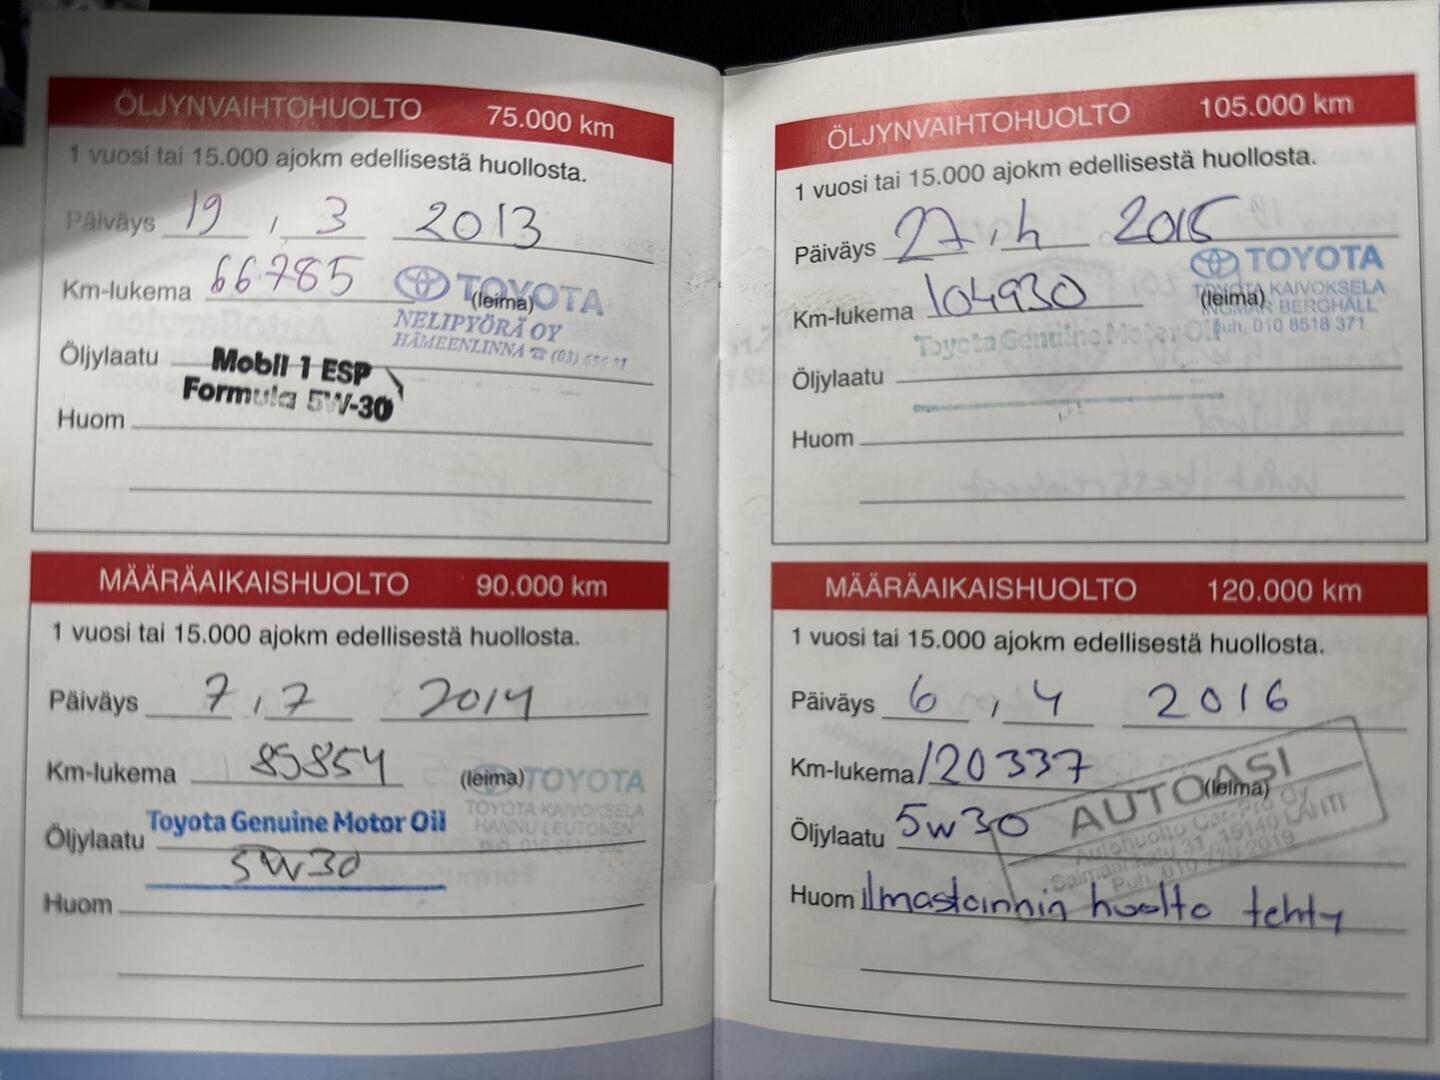 ÖLJYNVAIHTOHUOLTO 75.000 km
1 vuosi tai 15.000 ajokm edellisestä huollosta.
Päiväys 19 , 3 2013
Km-lukema 66785 (leima) TOYOTA
NELIPYÖRÄ OY
HÄMEENLINNA ☎ (03)
Öljylaatu Mobil 1 ESP
Formula 5W-30
Huom
MÄÄRÄAIKAISHUOLTO 90.000 km
1 vuosi tai 15.000 ajokm edellisestä huollosta.
Päiväys 7 , 7 2014
Km-lukema 85854 (leima) TOYOTA
TOYOTA KAIVOKSELA
HANNU LEUTONEN
Öljylaatu Toyota Genuine Motor Oil
5W30
Huom
ÖLJYNVAIHTOHUOLTO 105.000 km
1 vuosi tai 15.000 ajokm edellisestä huollosta.
Päiväys 27 , 4 2015
TOYOTA
Km-lukema 104930 (leima)
TOYOTA KAIVOKSELA
INGMAR BERGHÄLL
Puh. 010 8518 371
Toyota Genuine Motor Oil
Öljylaatu
Huom
MÄÄRÄAIKAISHUOLTO 120.000 km
1 vuosi tai 15.000 ajokm edellisestä huollosta.
Päiväys 6 , 4 2016
Km-lukema 120337 (leima)
Öljylaatu 5w30
AUTOASI
Autohuolto Car-Pro Oy
Saimaankatu 31, 15140 LAHTI
Puh. 010 770 2019
Huom ilmastoinnin huolto tehty